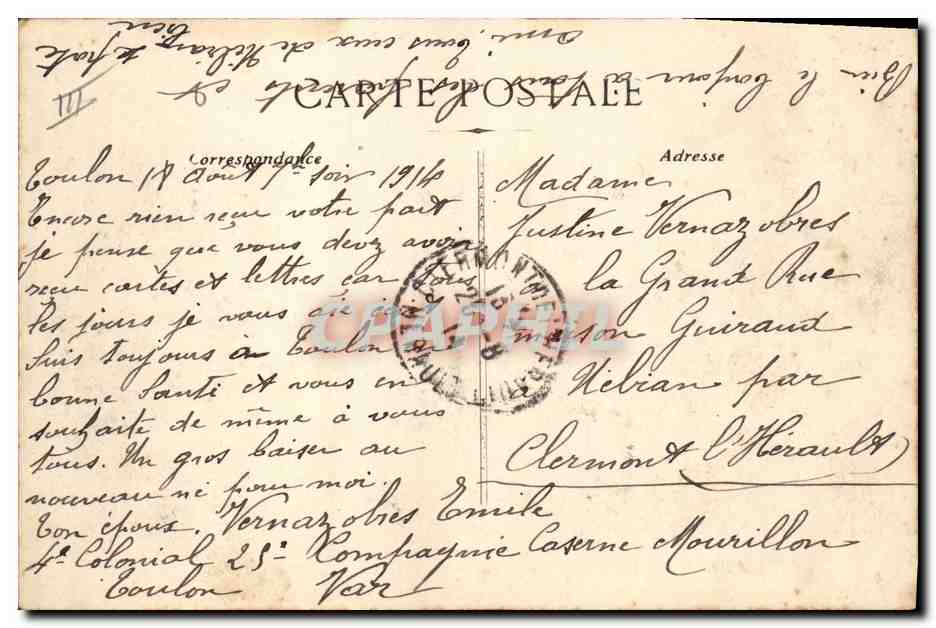 Bien le bonjour à tous les parents et
amis. tous ceux de Nébian
bien
CARTE POSTALE
III
Correspondance
Adresse
Toulon 18 Août 7h soir 1914
Encore rien reçu votre part
je pense que vous devez avoir
reçu cartes et lettres car tous
les jours je vous
Suis toujours à Toulon en
bonne Santé et vous en
souhaite de même à vous
tous. Un gros baiser au
nouveau né pour moi.
Ton époux. Vernazobres Emile
4e Colonial 25e Compagnie Caserne Mourillon
Toulon Var
Madame
Justine Vernazobres
la Grande Rue
maison Guiraud
Nébian par
Clermont l'Hérault
CLERMONT-L'HERAULT
CPAPHIL